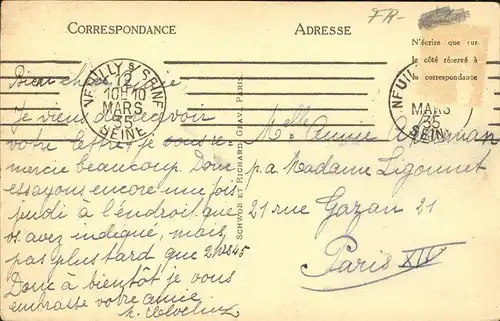 CORRESPONDANCE
ADRESSE
FR-
N'écrire que sur
le côté réservé à
la correspondance
NEUILLY S/ SEINE
12
10H10
MARS
35
SEINE
NEUIL
MARS
35
SEINE
Bien chère
Je viens de recevoir
votre lettre, je vous re-
mercie beaucoup. Donc
essayons encore une fois
jeudi à l'endroit que
vs. avez indiqué, mais
pas plus tard que 2h45
Donc à bientôt je vous
embrasse votre amie
SCHWOB ET RICHARD GRAV. PARIS.
Melle Annie
p.a. Madame Ligonnet
21 rue Gazan 21
Paris XIV